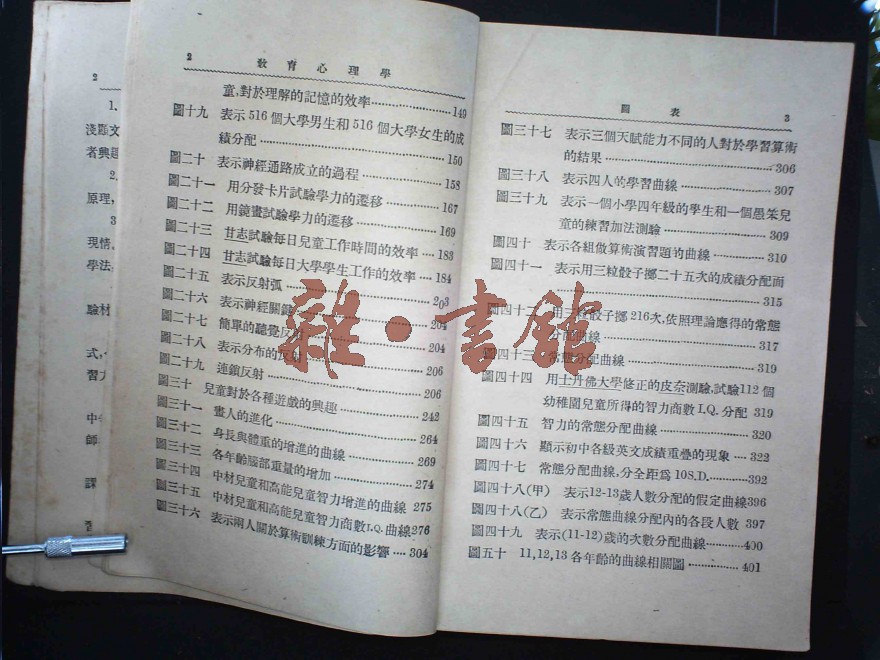 2
1.
淺顯文
者興趣
2.
原理,
3
現情。
學法
驗材
式,
習
中
師
課
2 教育心理學
童,對於理解的記憶的效率 149
圖十九 表示516個大學男生和516個大學女生的成
績分配 150
圖二十 表示神經通路成立的過程 158
圖二十一 用分發卡片試驗學力的遷移 167
圖二十二 用鏡畫試驗學力的遷移 169
圖二十三 甘志試驗每日兒童工作時間的效率 183
圖二十四 甘志試驗每日大學學生工作的效率 184
圖二十五 表示反射弧 203
圖二十六 表示神經關鍵 204
圖二十七 簡單的聽覺反射 204
圖二十八 表示分布的反射 206
圖二十九 連鎖反射 206
圖三十 兒童對於各種遊戲的興趣 242
圖三十一 畫人的進化 264
圖三十二 身長與體重的增進的曲線 269
圖三十三 各年齡腦部重量的增加 274
圖三十四 中材兒童和高能兒童智力增進的曲線 275
圖三十五 中材兒童和高能兒童智力商數I.Q.曲線 276
圖三十六 表示兩人關於算術訓練方面的影響 304
圖表 3
圖三十七 表示三個天賦能力不同的人對於學習算術
的結果 306
圖三十八 表示四人的學習曲線 307
圖三十九 表示一個小學四年級的學生和一個愚笨兒
童的練習加法測驗 309
圖四十 表示各組做算術演習題的曲線 310
圖四十一 表示用三粒骰子擲二十五次的成績分配而
315
圖四十二 用三粒骰子擲216次,依照理論應得的常態
分配曲線 317
圖四十三 常態分配曲線 319
圖四十四 用士丹佛大學修正的皮奈測驗,試驗112個
幼稚園兒童所得的智力商數I.Q.分配 319
圖四十五 智力的常態分配曲線 320
圖四十六 顯示初中各級英文成績重疊的現象 322
圖四十七 常態分配曲線,分全距為10S.D. 392
圖四十八(甲) 表示12-13歲人數分配的假定曲線 396
圖四十八(乙) 表示常態曲線分配內的各段人數 397
圖四十九 表示(11-12)歲的次數分配曲線 400
圖五十 11,12,13各年齡的曲線相關圖 401
雜·書館